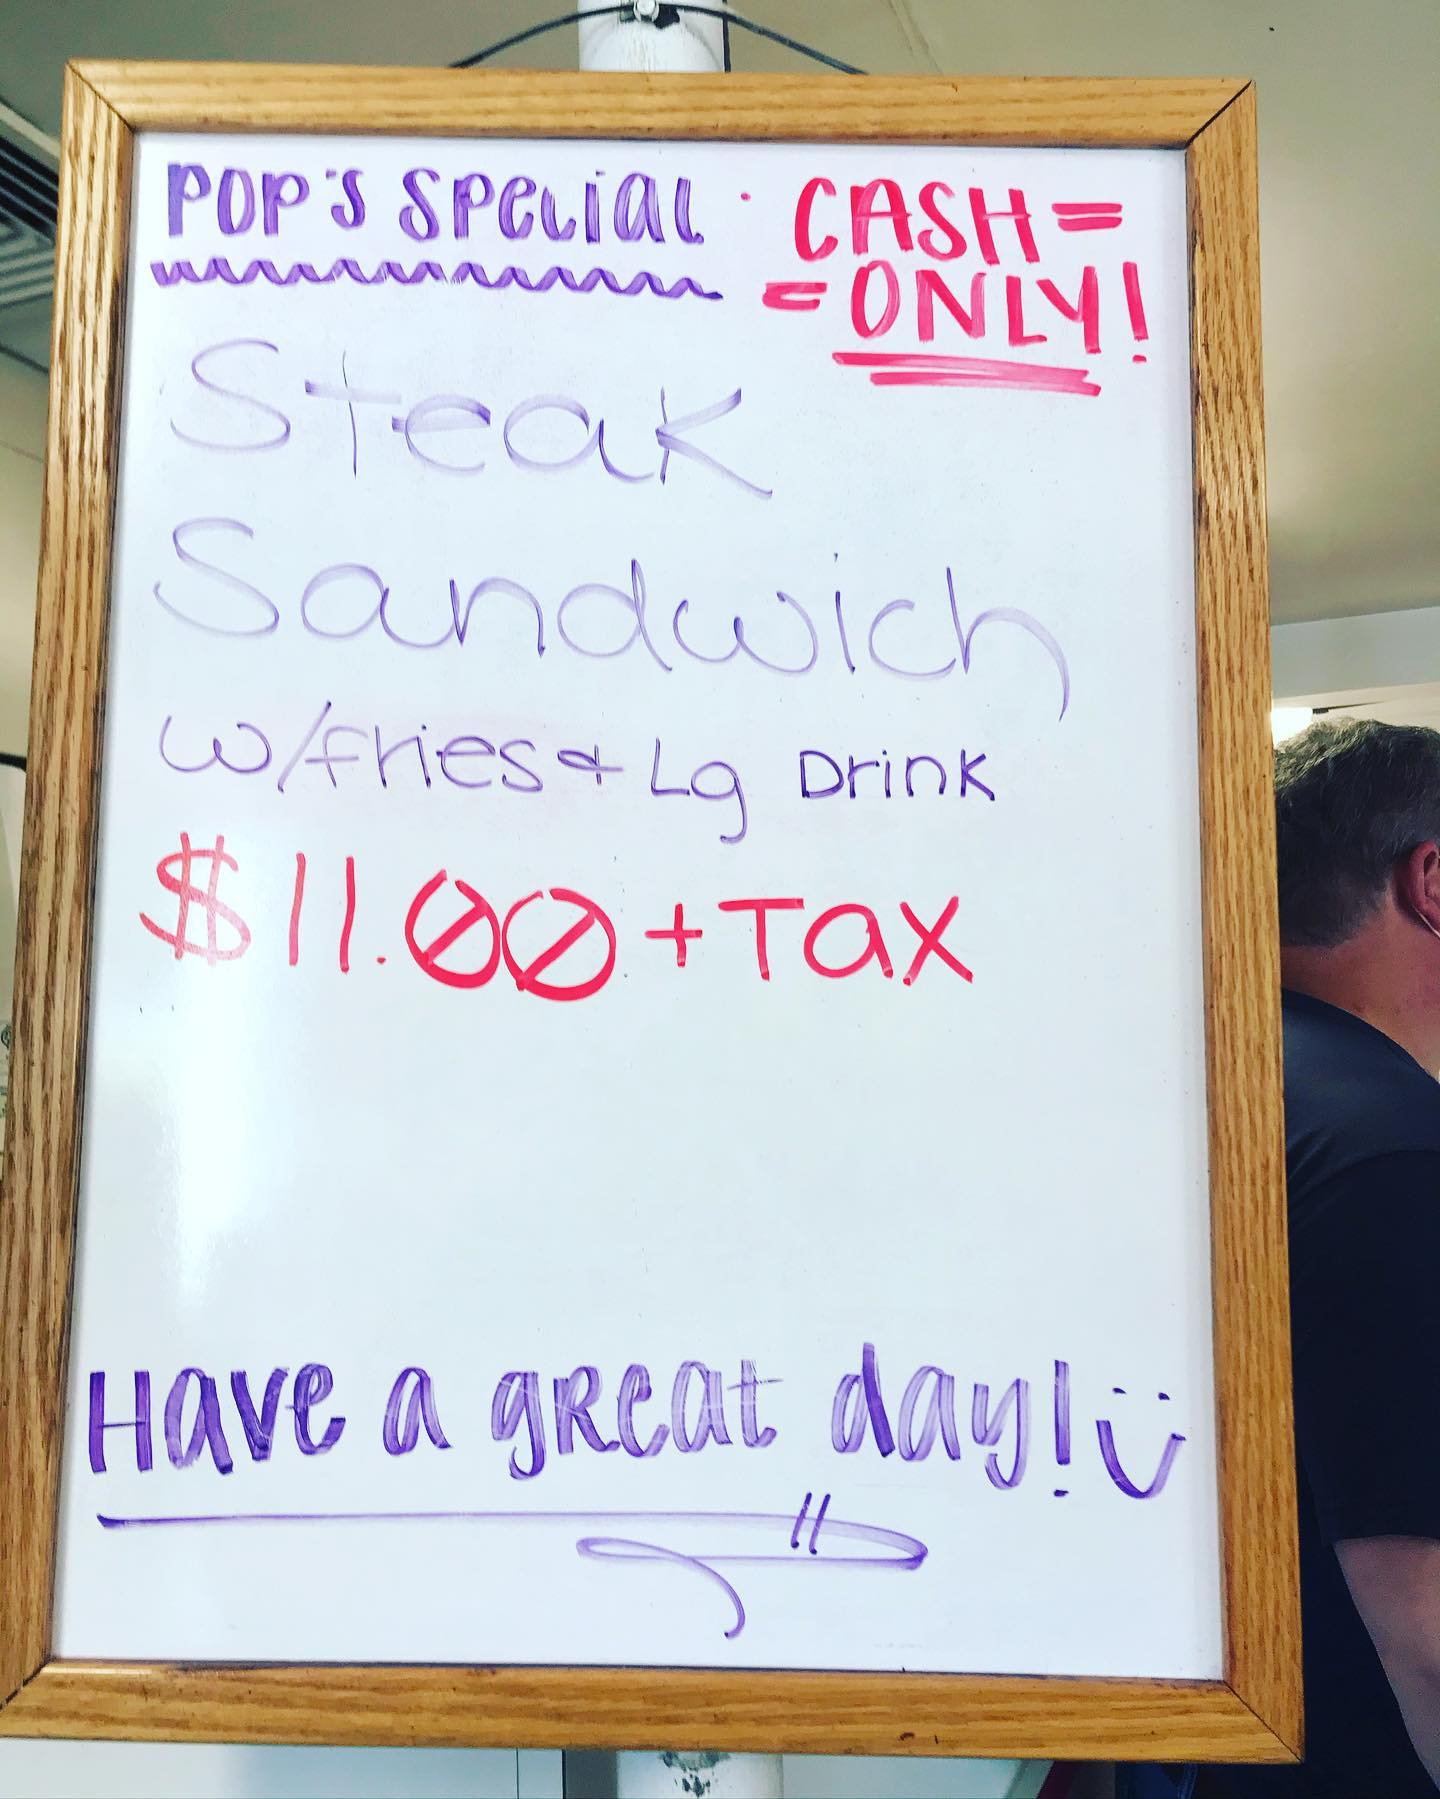 POP'S SPECIAL · CASH =
= ONLY!
Steak
Sandwich
w/fries & Lg Drink
$11.00 + Tax
Have a great day!